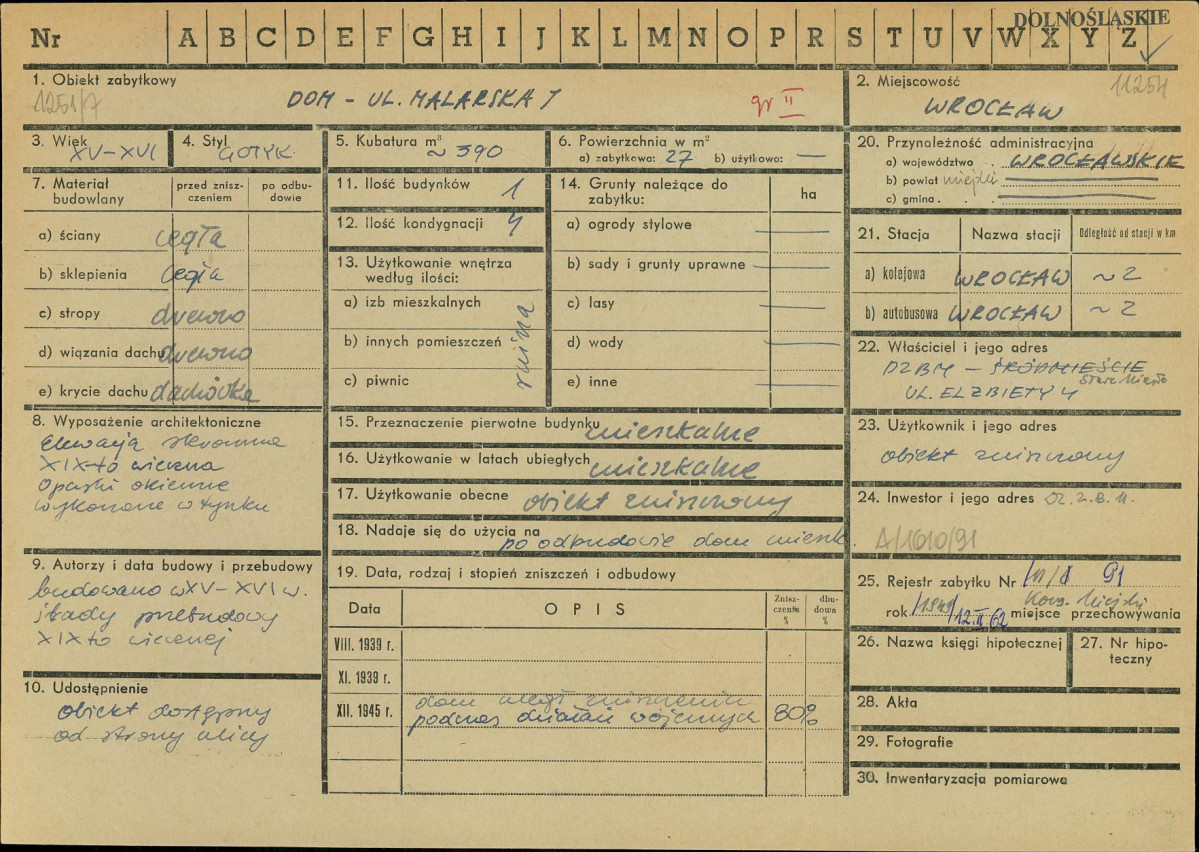 DOLNOŚLĄSKIE
Nr A B C D E F G H I J K L M N O P R S T U V W X Y Z
1. Obiekt zabytkowy
1251/7
DOM – UL. MALARSKA 7
gr II
2. Miejscowość
11254
WROCŁAW
3. Wiek
XV–XVI
4. Styl
GOTYK
5. Kubatura m³
~ 390
6. Powierzchnia w m²
a) zabytkowa: 27 b) użytkowo: —
7. Materiał budowlany
przed zniszczeniem
po odbudowie
a) ściany cegła
b) sklepienia cegła
c) stropy drewno
d) wiązania dachu drewno
e) krycie dachu dachówka
8. Wyposażenie architektoniczne
Elewacja skromna
XIX-to wieczna
Opaski okienne
wykonane w tynku
9. Autorzy i data budowy i przebudowy
budowano w XV–XVI w.
ślady przebudowy
XIX-to wiecznej
10. Udostępnienie
obiekt dostępny
od strony ulicy
11. Ilość budynków 1
12. Ilość kondygnacji 4
13. Użytkowanie wnętrza
według ilości:
a) izb mieszkalnych
b) innych pomieszczeń
c) piwnic
ruina
14. Grunty należące do
zabytku:
ha
a) ogrody stylowe —
b) sady i grunty uprawne —
c) lasy —
d) wody —
e) inne —
15. Przeznaczenie pierwotne budynku mieszkalne
16. Użytkowanie w latach ubiegłych mieszkalne
17. Użytkowanie obecne obiekt zniszczony
18. Nadaje się do użycia na
po odbudowie dom mieszk.
19. Data, rodzaj i stopień zniszczeń i odbudowy
Data
OPIS
Zniszczenia %
dbudowa %
VIII. 1939 r.
XI. 1939 r.
XII. 1945 r.
dom uległ zniszczeniu
podczas działań wojennych 80%
20. Przynależność administracyjna
a) województwo . WROCŁAWSKIE
b) powiat miejski
c) gmina . . .
21. Stacja
Nazwa stacji
Odległość od stacji w km
a) kolejowa WROCŁAW ~ 2
b) autobusowa WROCŁAW ~ 2
22. Właściciel i jego adres
DZBM – ŚRÓDMIEŚCIE
Stare Miasto
UL. ELŻBIETY 4
23. Użytkownik i jego adres
obiekt zniszczony
24. Inwestor i jego adres
A/1010/91
25. Rejestr zabytku Nr 91
Kons. Miejski
rok /1949/ 12.II.62 miejsce przechowywania
26. Nazwa księgi hipotecznej
27. Nr hipoteczny
28. Akta
29. Fotografie
30. Inwentaryzacja pomiarowa